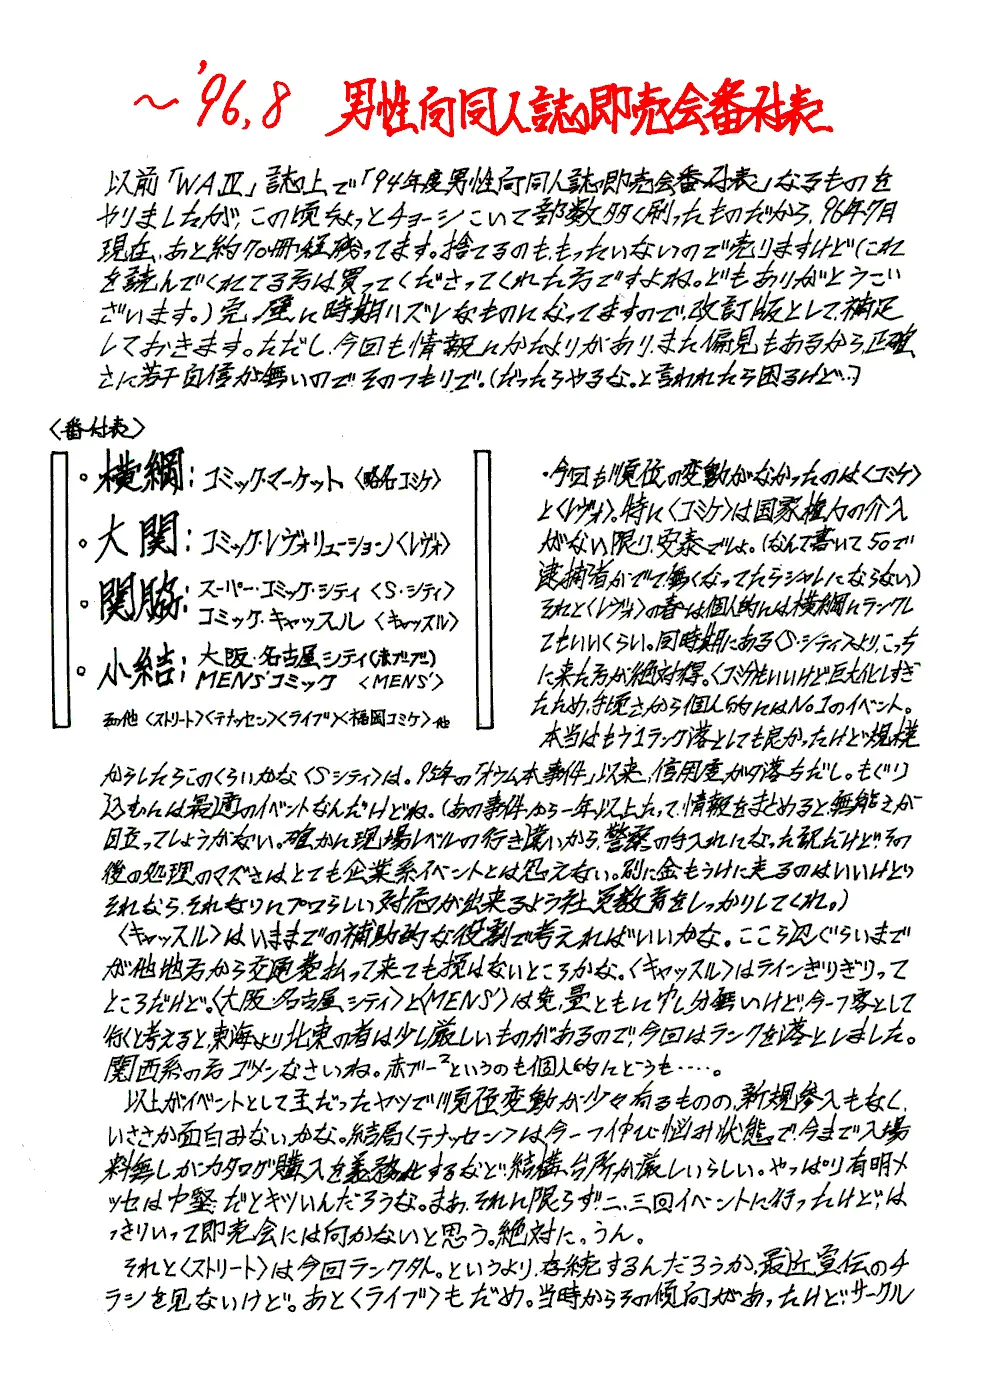 ～'96.8 男性向同人誌即売会番付表
以前「WAⅣ」誌上で「'94年度男性向同人誌即売会番付表」なるものを
やりましたが、この頃ちょっとチョーシこいて部数多く刷ったものだから、96年7月
現在、あと約70冊程残ってます。捨てるのももったいないので売りますけど(これ
を読んでくれてる方は買ってくださってくれた方ですよね。どもありがとうござ
ざいます。)完ぺ壁に時期ハズレなものになってますので、改訂版として、補足
しておきます。ただし、今回も情報にかたよりがあり、また偏見もあるから、正確
さに若干自信が無いので、そのつもりで。(だったらやるな。と言われたら困るけど…)
〈番付表〉
・横綱：コミック・マーケット〈略名コミケ〉
・大関：コミック・レヴォリューション〈レヴォ〉
・関脇：スーパー・コミック・シティ〈S・シティ〉
コミック・キャッスル〈キャッスル〉
・小結：大阪・名古屋シティ(赤ブブ)
MENS'コミック〈MENS'〉
その他〈ストリート〉〈テナッセン〉〈ライブ〉〈福岡コミケ〉他
・今回も順位の変動がなかったのは〈コミケ〉
と〈レヴォ〉。特に〈コミケ〉は国家権力の介入
がない限り、安泰でしょ。(なんて書いて50で
逮捕者がでて無くなってたらシャレにならない)
それと〈レヴォ〉の春は個人的には横綱にランクし
てもいいくらい。同時期にある〈S・シティ〉より、こっち
に来た方が絶対得。〈コミケ〉もいいけど巨大化しすぎ
たため、手頃さから個人的にはNo.1のイベント。
本当はもう1ランク落としても良かったけど、規模
からしたらこのくらいかな〈Sシティ〉は。95年の「オウム本事件」以来、信用度ガタ落ちだし。もぐり
込むには最適のイベントなんだけどね。(あの事件から一年以上たって、情報をまとめると、無能さが
目立ってしょうがない。確かに現場レベルの行き違いから、警察の手入れになった訳だけど、その
後の処理のマズさはとても企業系イベントとは思えない。別に金もうけに走るのはいいけど
それなら、それなりにプロらしい対応が出来るよう社員教育をしっかりしてくれ。)
〈キャッスル〉はいままでの補助的な役割で考えればいいかな。ここら辺ぐらいまで
が他地方から交通費払って来ても損はないところかな。〈キャッスル〉はラインぎりぎりって
ところだけど。〈大阪・名古屋シティ〉と〈MENS'〉は質、量ともに申し分無いけど、今一つ客として
行くと考えると、東海より北東の者は少し厳しいものがあるので、今回はランクを落としました。
関西系の方ゴメンなさいね。赤ブー²というのも個人的にどうも‥‥。
以上がイベントとして主だったヤツで、順位変動が少々有るものの、新規参入もなく、
いささか面白みないかな。結局〈テナッセン〉は、今一つ伸び悩み状態で、今まで入場
料無しがカタログ購入を義務化するなど、結構、台所が厳しいらしい。やっぱり有明メ
ッセは中堅だとキツいんだろうな。まあ、それに限らず、二、三回イベントに行ったけど、は
っきりいって即売会には向かないと思う。絶対に。うん。
それと〈ストリート〉は今回ランク外。というより、存続するんだろうか、最近、宣伝のチ
ラシを見ないけど。あと〈ライブ〉もだめ。当時からその傾向があったけど、サークル